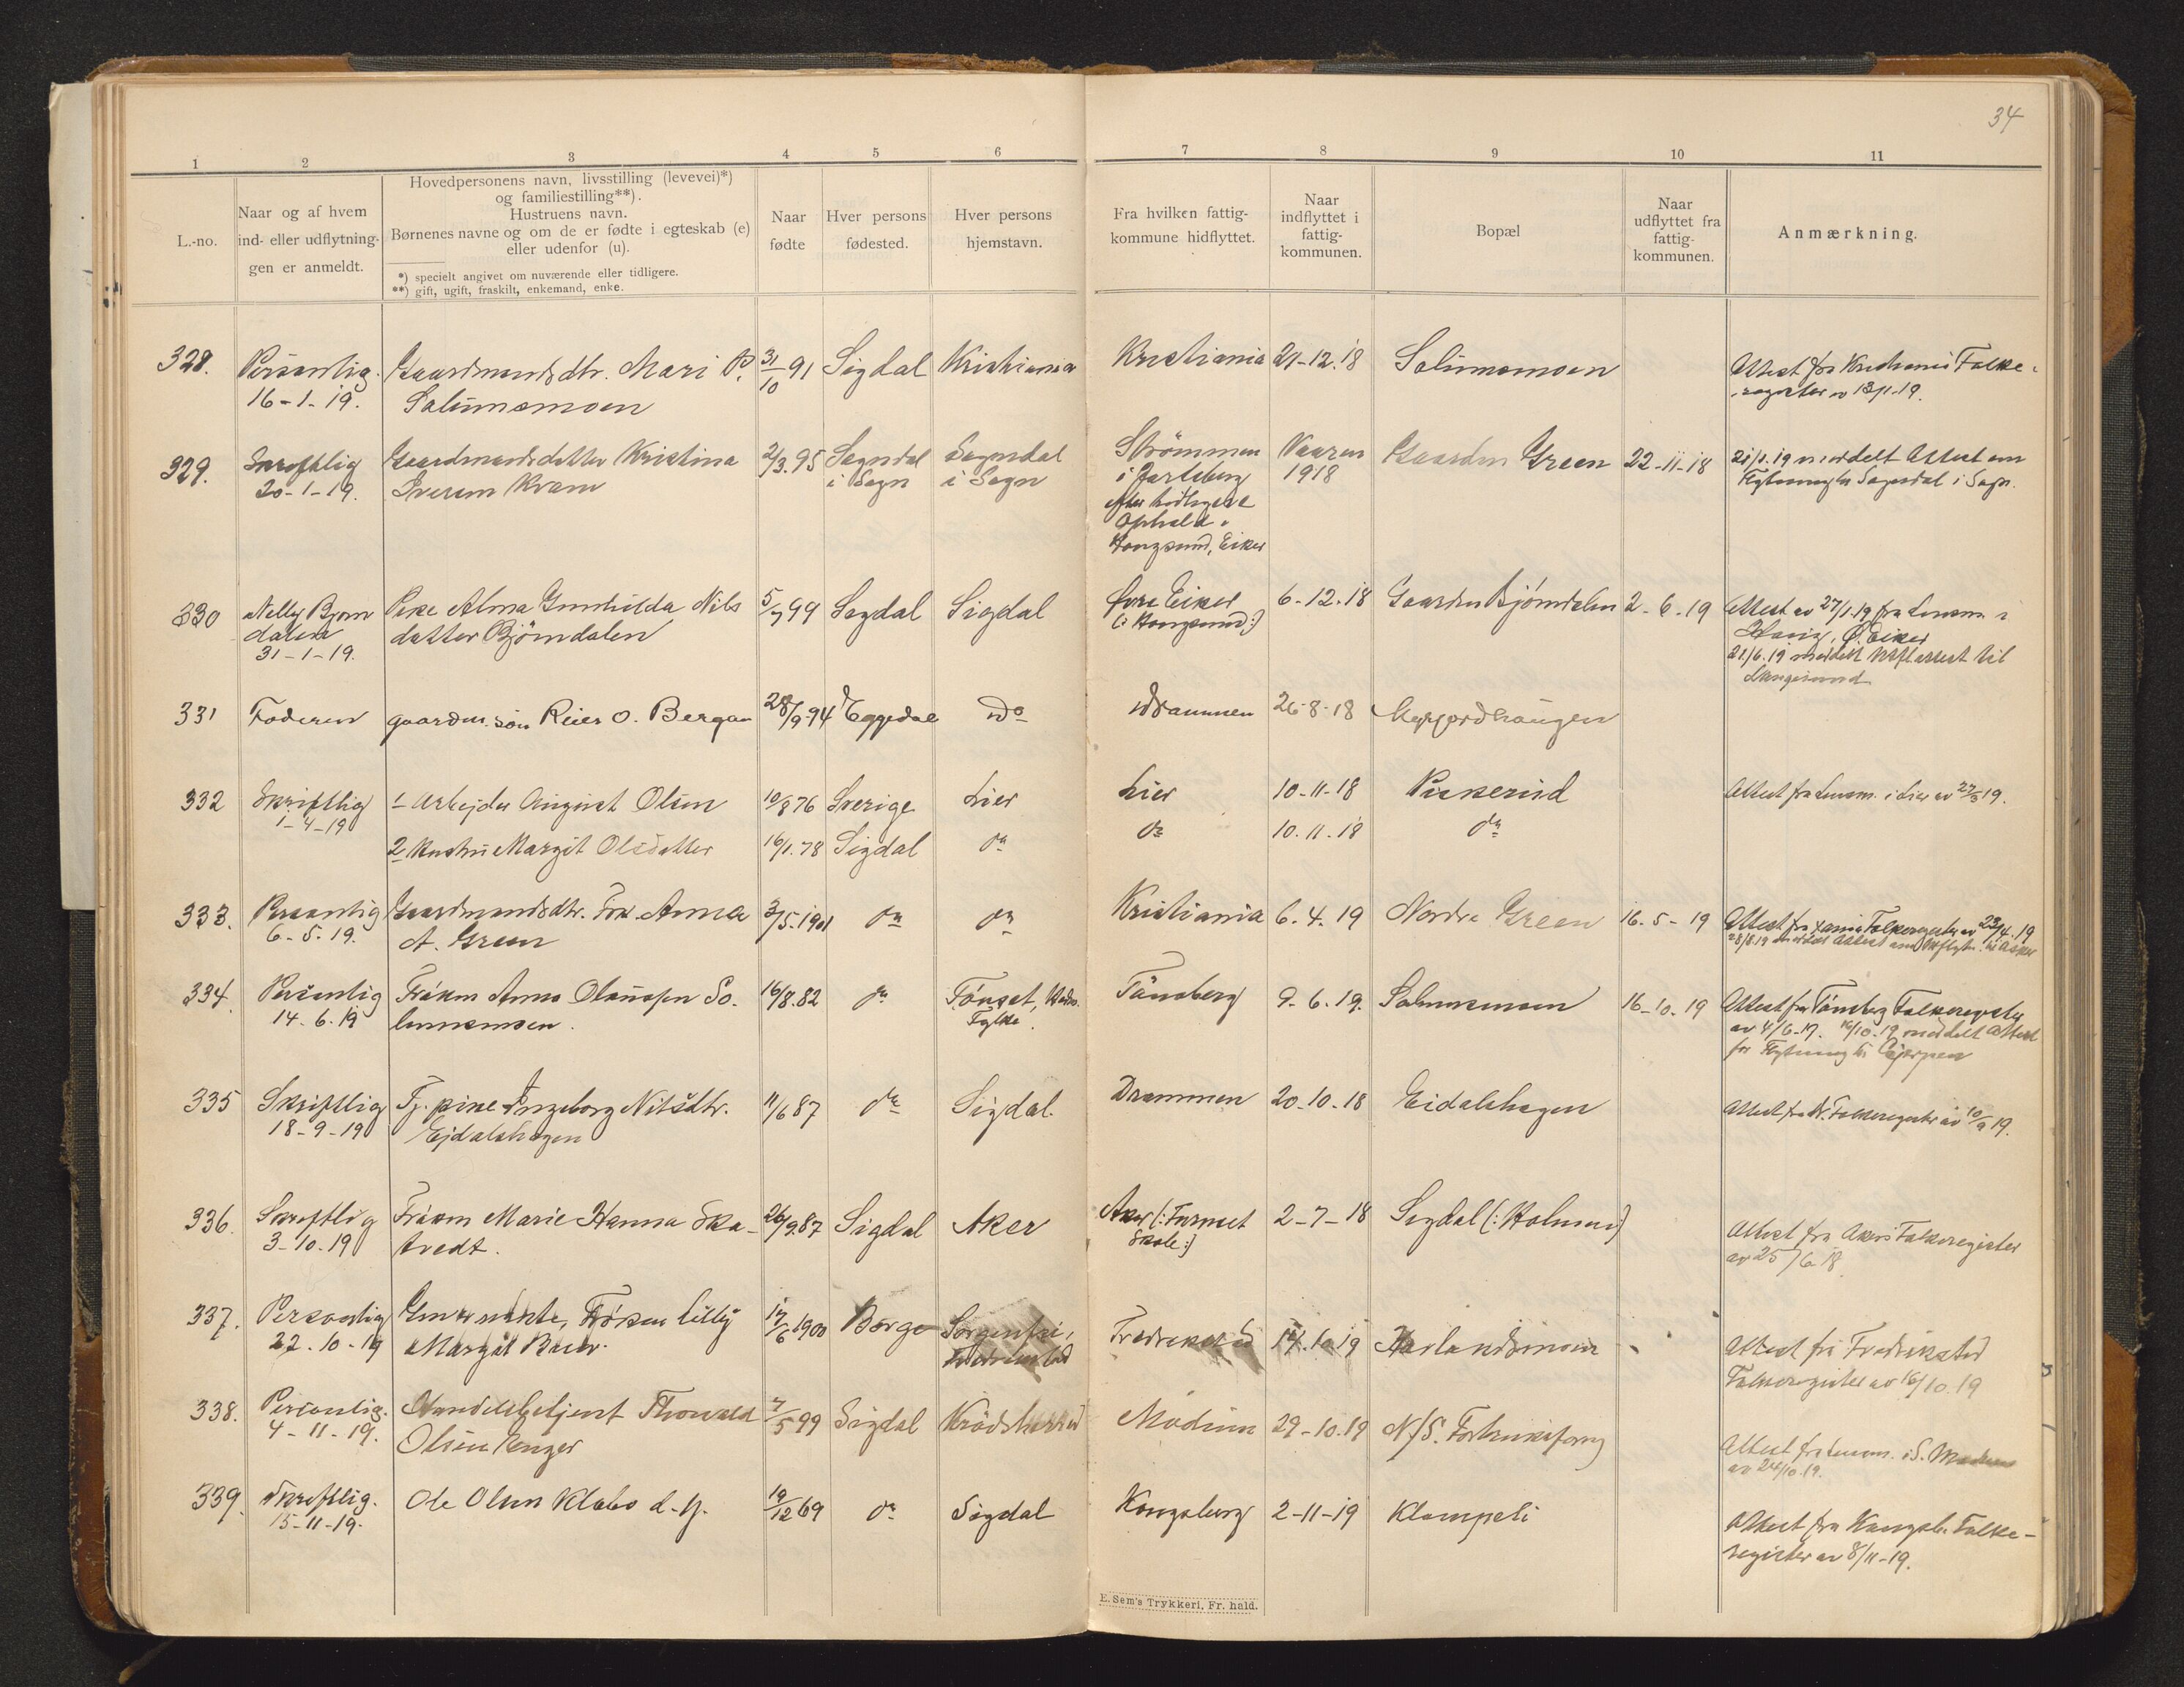 34
1 2 3 4 5 6 7 8 9 10 11
L.-no.
Naar og af hvem
ind- eller udflytnin-
gen er anmeldt.
Hovedpersonens navn, livsstilling (levevei)*)
og familiestilling**).
Hustruens navn.
Børnenes navne og om de er fødte i egteskab (e)
eller udenfor (u).
*) specielt angivet om nuværende eller tidligere.
**) gift, ugift, fraskilt, enkemand, enke.
Naar
fødte
Hver persons
fødested.
Hver persons
hjemstavn.
Fra hvilken fattig-
kommune hidflyttet.
Naar
indflyttet i
fattig-
kommunen.
Bopæl
Naar
udflyttet fra
fattig-
kommunen.
Anmærkning.
328. Personlig Gaardmandsdtr. Mari P. 31/10 91 Sigdal Kristiania Kristiania 21-12.18 Solumsmoen Attest fra Kristiania Folke-
16-1-19. Solumsmoen register av 13/1-19.
329. Skriftlig Gaardmandsdatter Kristina 2/3.95 Sogndal Sogndal Strömmen Vaaren Gaarden Green 22-11-18 21/1.19 meddelt Attest om
20-1-19. Iversen Kvam i Sogn i Sogn i Jarlsberg 1918 Flytning til Sogndal i Sogn.
efter tidligere
Ophold i
Hougsund, Eiker
330 Nelly Bjørn Pike Alma Gunhilda Nils 5/7 99 Sigdal Sigdal Øvre Eiker 6-12.18 Gaarden Bjørndalen 2-6.19 Attest av 27/1.19 fra Lensm. i
dalen datter Bjørndalen (: Hougsund:) Haug, Ø. Eiker
31-1-19. 21/6.19 meddelt Utfl.attest til
Langesund
331 Faderen gaardm. søn Reier O. Bergan 28/9-94 Eggedal do Drammen 26-8-18
332 Skriftlig 1 Arbejder August Olsen 10/8 76 Sverige Lier Lier 10-11-18 Puserud Attest fra Lensm. i Lier av 27/3 19.
1-4-19 2 Hustru Margit Olsdatter 16/1.78 Sigdal do do 10.11.18 do
333. Personlig Gaardmandsdtr. Frk. Anna 3/5.1901 do do Kristiania 6.4.19 Nordre Green 16.5-19 Attest fra Xania Folkeregister av 23/4.19
6-5.19. A. Green 28/8.19 meddelt Attest om Utflytn. til Asker
334. Personlig Frøken Anna Olaussen So- 16/8.82 do Tönset, Hedm. Tönsberg 9.6.19. Solumsmoen 16-10.19 Attest fra Tönsberg Folkeregister
14.6.19 lumsmoen. Fylke. av 4/6-19. 16/10.19 meddelt Attest
for Flytning til Gjerpen
335 Skriftlig Tj. pike Ingeborg Nilsdtr. 11/6 87 do Sigdal. Drammen 20-10-18 Eidalshagen Attest fra Dr. Folkeregister av 10/9 19.
18-9-19 Ejdalshagen
336. Skriftlig Frøken Marie Hanna Ska- 26/9.87 Sigdal Aker Aker (: Furuset 2-7-18 Sigdal (: Holmen:) Attest fra Akers Folkeregister
3-10.19 tvedt. Skole:) av 25/6 18
337. Personlig Guvernante, Frøken Lilly 17/6 1900 Borge Sorgenfri, Fredrikstad 14.10.19 Attest fra Fredrikstad
22.10-19 Margit Fredrikstad Folkeregister av 16/10.19
338. Personlig. Handelsbetjent Thorvald 7/5 99 Sigdal Krödsherred Modum 29-10.19 N/S. Forbruksforg Attest fra Lensm. i S. Modum
4-11-19. Olsen Kenger av 24/10.19.
339. Skriftlig. Ole Olsen Klabo d.y. 19/12 69 do Sigdal Kongsberg 2-11-19 Klompeli Attest fra Kongsb. Folke-
15-11-19. register av 8/11-19.
E. Sem's Trykkeri, Fr. hald.